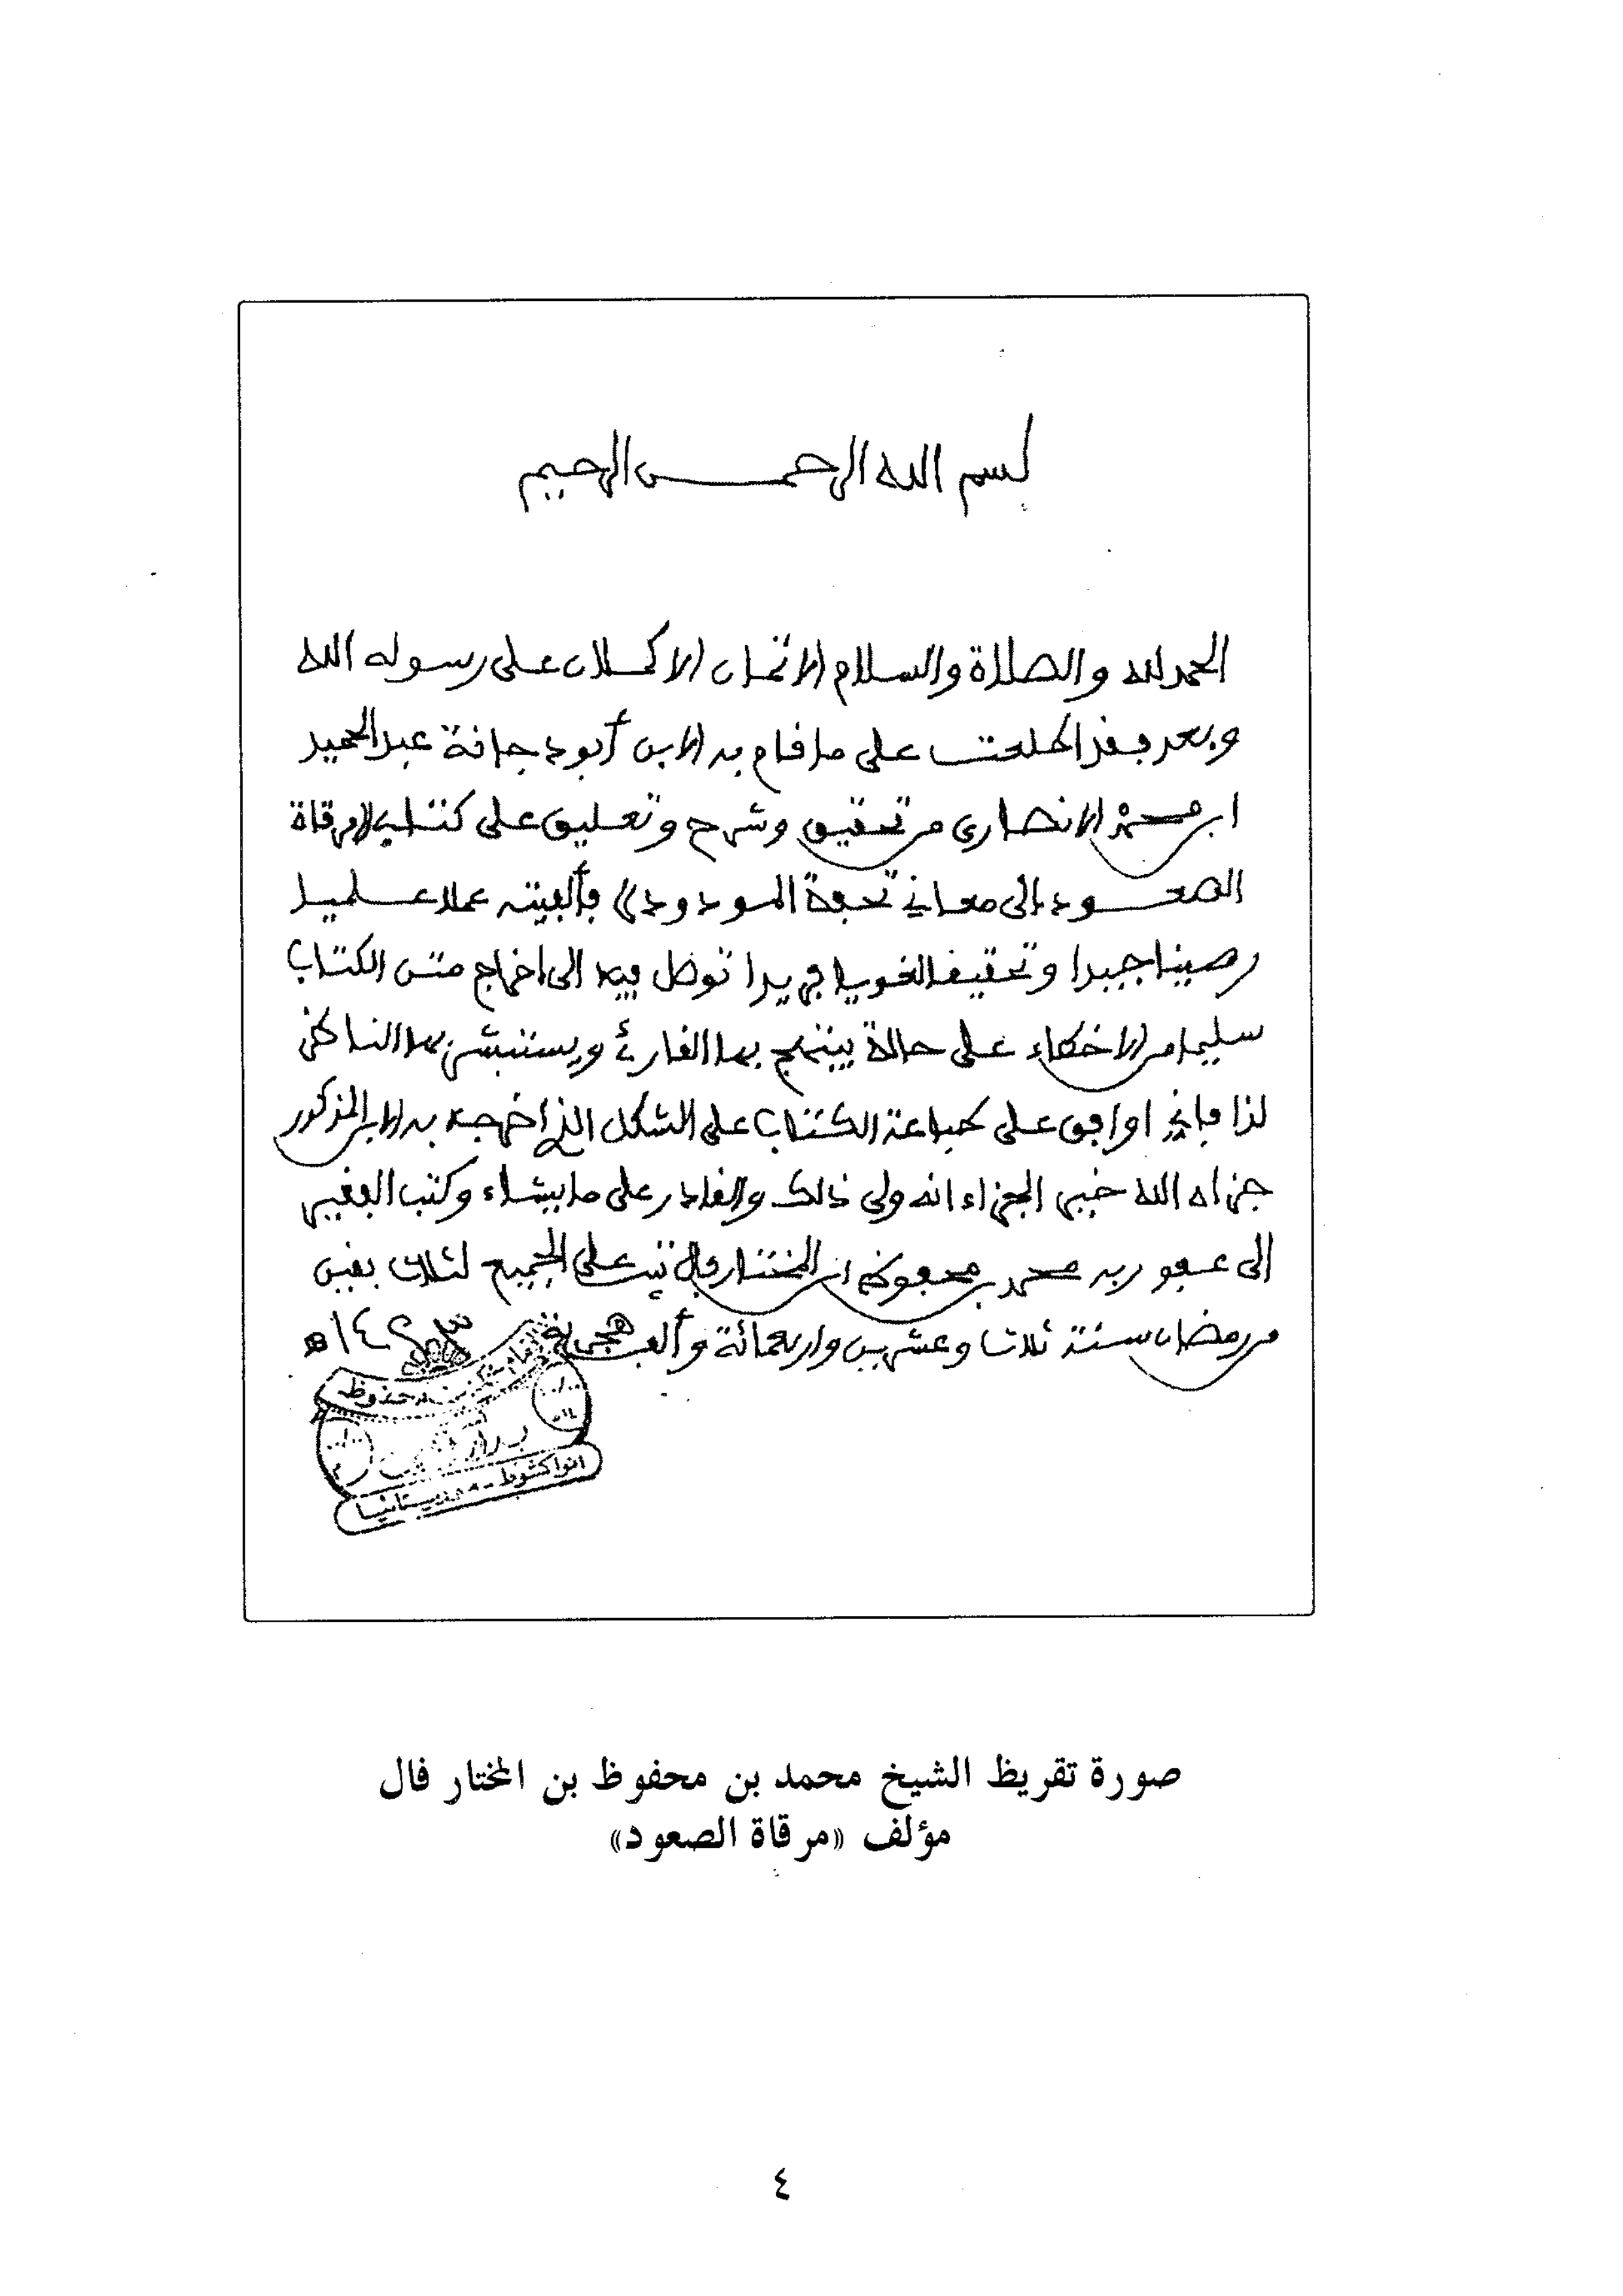 بسم الله الرحمن الرحيم
الحمد لله والصلاة والسلام الاتمان الاكملان على رسوله الله
وبعد فقد اطلعت على ما قام به الابن أبو دجانة عبد الحميد
ابن محمد الانصاري من تحقيق وشرح وتعليق على كتاب ((مرقاة
الصعود إلى معاني تحفة المودود)) فألفيته عملا علميا
رصينا جيدا وتحقيقا لغويا فريدا توصل فيه الى اخراج متن الكتاب
سليما من الاخطاء على حالة يبتهج بها القارئ ويستبشر بها الناظر
لذا فإني اوافق على طباعة الكتاب على الشكل الذي اخرجه به الابن المذكور
جزاه الله خير الجزاء انه ولي ذلك والقادر على ما يشاء وكتب الفقير
الى عفو ربه محمد بن محفوظ ابن المختار فال تيب على الجميع لثلاث بقين
من رمضان سنة ثلاث وعشرين واربعمائة وألف هجرية ١٤٢٣ه
بن محفوظ
انواكشوط - موريتانيا
صورة تقريظ الشيخ محمد بن محفوظ بن المختار فال
مؤلف «مرقاة الصعود»
٤